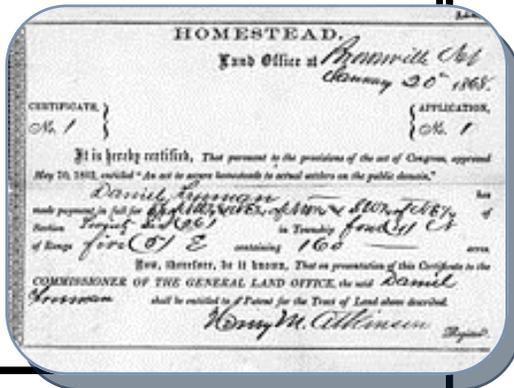 HOMESTEAD.
Land Office at Brownville Neb
January 20th 1868.
CERTIFICATE, No. 1
APPLICATION, No. 1
It is hereby certified, That pursuant to the provisions of the act of Congress, approved
May 20, 1862, entitled "An act to secure homesteads to actual settlers on the public domain,"
Daniel Freeman has
made payment in full for of NW¼ & SW¼ of NE¼ of
Section Twenty six (26) in Township four (4) N
of Range five (5) E containing 160 acres.
Now, therefore, be it known, That on presentation of this Certificate to the
COMMISSIONER OF THE GENERAL LAND OFFICE, the said Daniel
Freeman shall be entitled to a Patent for the Tract of Land above described.
Henry M. Atkinson Register.